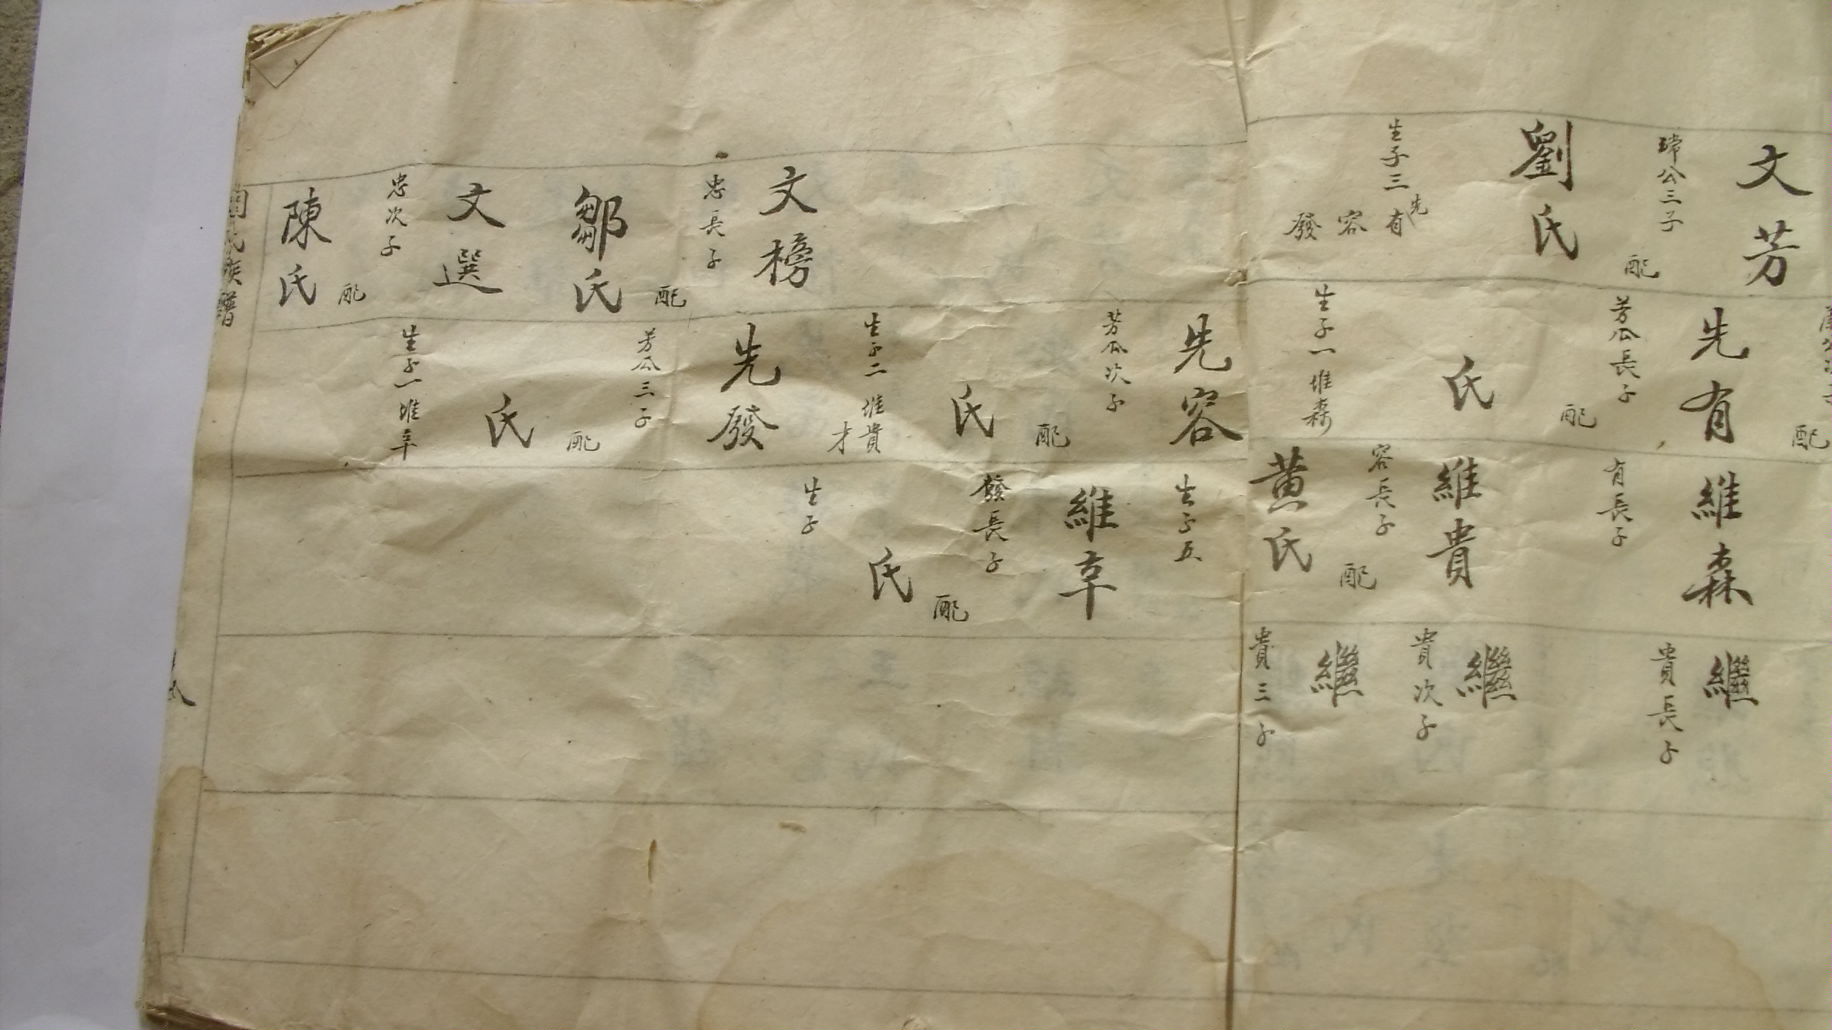 文芳
瑺公三子
配
劉氏
生子三
先有
容
發
文榜
忠長子
配
鄒氏
文選
忠次子
配
陳氏
配
先有
芳公長子
配
氏
生子一 維森
先容
芳公次子
配
氏
生子二 維貴
才
先發
芳公三子
配
氏
生子一 維辛
維森
有長子
維貴
容長子
配
黃氏
生子五
維辛
發長子
配
氏
生子
繼
貴長子
繼
貴次子
繼
貴三子
氏族譜